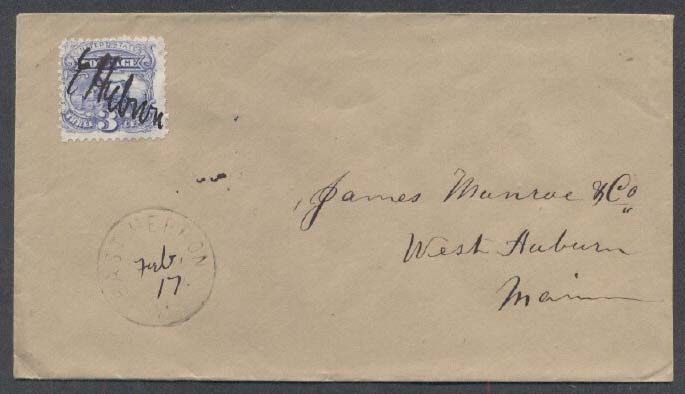 UNITED STATES
POSTAGE
E Hebron
3
THREE CENTS
EAST HEBRON
Feb.
17.
James Munroe & Co
West Auburn
Maine